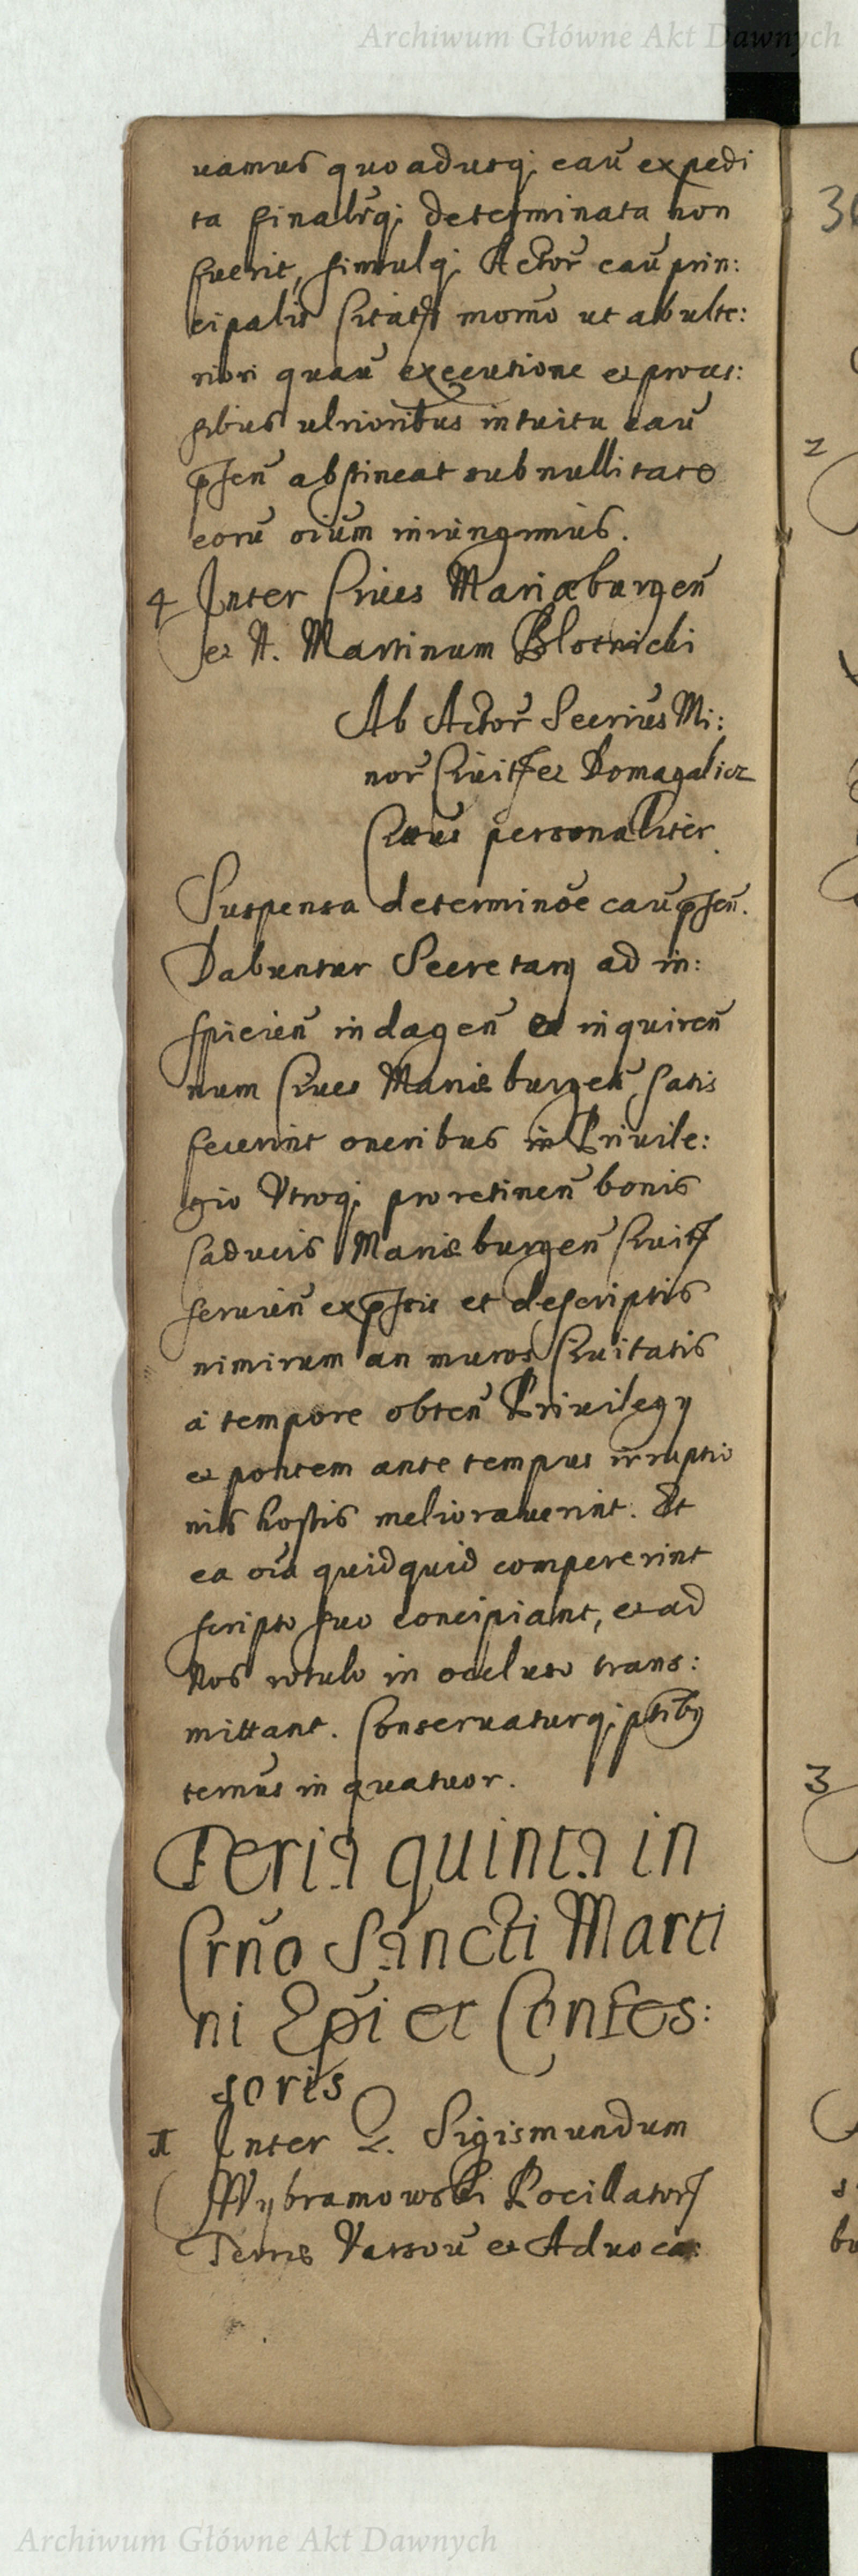 Archiwum Główne Akt Dawnych
uamus quoadusq; cau expedi
ta finalrq; determinata non
fuerit, simulq; Actor cau prin:
cipalis Citats momo ut ab ulte:
riori quau executione et proces:
sibus ulrioribus intuitu cau
psen abstineat sub nullitate
eoru oium iniungimus.
4 Inter Ciues Mariæburgen
et N. Martinum Blotnicki
Ab Actor Secrius Mi:
nor Ciuit et Domagalicz
Citus personaliter
Suspensa determinoe cau psen.
Dabuntur Secretarij ad in:
spicien indagen et inquiren
num Ciues Mariæburgen satis
fecerint oneribus in Priuile:
gio Utroq; pro retinen bonis
caducis Mariæburgen Ciuit
seruien expssis et descriptis
nimirum an muros Ciuitatis
à tempore obten Priuilegij
et pontem ante tempus irruptio
nis hostis meliorauerint. Et
ea oia quidquid compererint
scripto suo concipiant, et ad
Nos rotulo in ocluso trans:
mittant. Conseruaturq; ptibq
ternus in quatuor.
Feria quinta in
Crno Sancti Marti
ni Epi et Confes:
soris
1 Inter G. Sigismundum
Wybramowski Pocillator
Terris et Aduoca:
2
3
Archiwum Główne Akt Dawnych